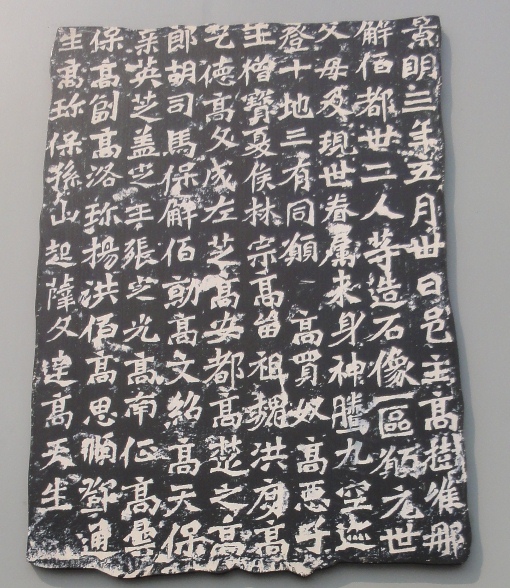 景明三年五月卅日邑主高樹維那
解佰都卅二人等造石像一區願元世
父母及現世眷屬來身神騰九空迹
登十地三有同願 高買奴高惡子
王僧寶夏侯林宗高留祖魏洪度高
乞德高文成左芝高安都高楚之高
郎胡司馬保解佰勛高文紹高天保
英芝盖芝王張芝光高南征高曇
保高副高洛珎楊洪佰高思順鄧通
生高珎保孫山起薛文達高天生